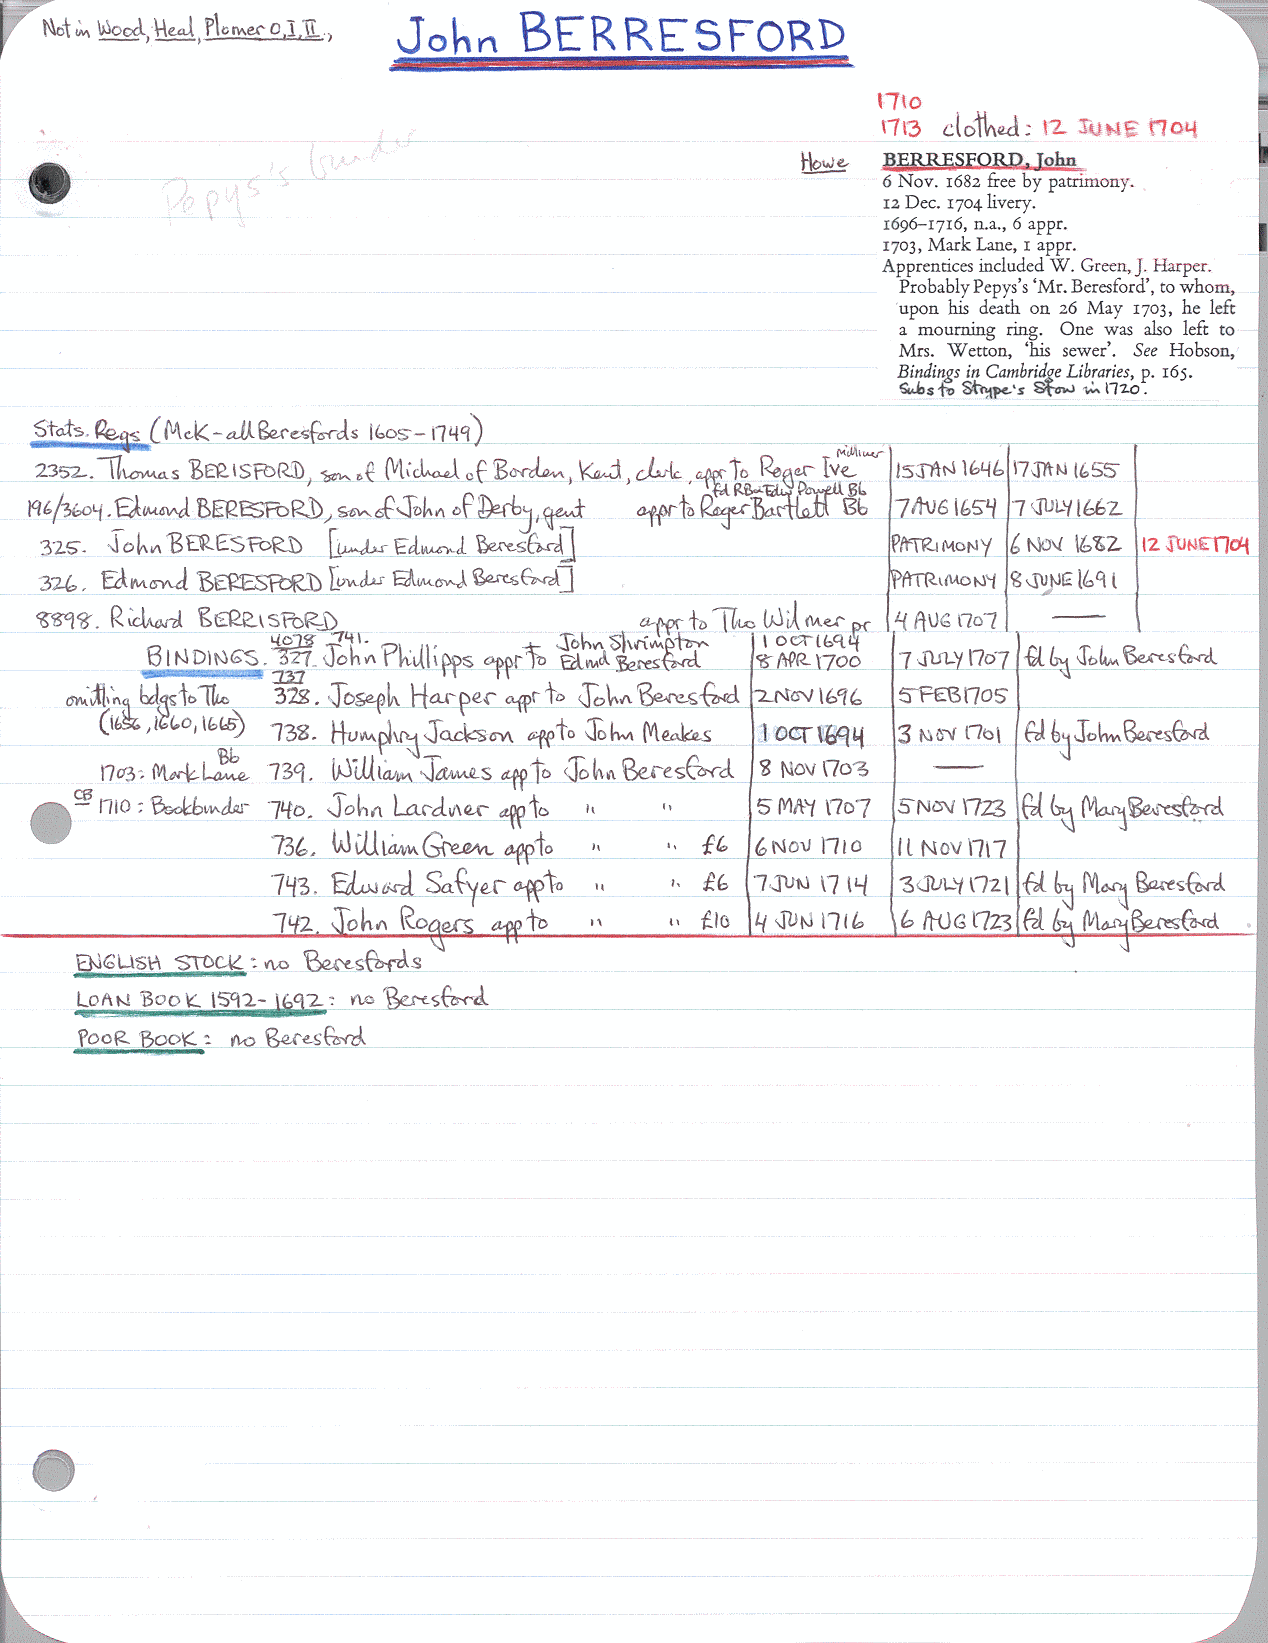 Not in Wood, Heal, Plomer O, I, II.,
John BERRESFORD
1710
1713 clothed: 12 JUNE 1704
Pepys's binder
Howe
BERRESFORD, John
6 Nov. 1682 free by patrimony.
12 Dec. 1704 livery.
1696–1716, n.a., 6 appr.
1703, Mark Lane, 1 appr.
Apprentices included W. Green, J. Harper.
Probably Pepys's 'Mr. Beresford', to whom,
upon his death on 26 May 1703, he left
a mourning ring. One was also left to
Mrs. Wetton, 'his sewer'. See Hobson,
Bindings in Cambridge Libraries, p. 165.
Subs to Strype's Stow in 1720.
Stats. Regs (McK - all Beresfords 1605-1749)
Milliner
2352. Thomas BERISFORD, son of Michael of Borden, Kent, clerk, appr to Roger Ive 15 JAN 1646 17 JAN 1655
fd RB Edw Powell Bb
196/3604. Edmond BERESFORD, son of John of Derby, gent appr to Roger Bartlett Bb 7 AUG 1654 7 JULY 1662
325. John BERESFORD [under Edmond Beresford] PATRIMONY 6 NOV 1682 12 JUNE 1704
326. Edmond BERESFORD [under Edmond Beresford] PATRIMONY 8 JUNE 1691
8898. Richard BERRISFORD appr to Tho Wilmer pr 4 AUG 1707 —
4078 741. John Shrimpton 1 OCT 1694
BINDINGS. 327. John Phillipps appr to Edmd Beresford 8 APR 1700 7 JULY 1707 fd by John Beresford
737
omitting bdgs to Tho 328. Joseph Harper appr to John Beresford 2 NOV 1696 5 FEB 1705
(1656, 1660, 1665) 738. Humphry Jackson app to John Meakes 1 OCT 1694 3 NOV 1701 fd by John Beresford
Bb
1703: Mark Lane 739. William James app to John Beresford 8 NOV 1703 —
CB 1710: Bookbinder 740. John Lardner app to " " 5 MAY 1707 5 NOV 1723 fd by Mary Beresford
736. William Green app to " " £6 6 NOV 1710 11 NOV 1717
743. Edward Safyer app to " " £6 7 JUN 1714 3 JULY 1721 fd by Mary Beresford
742. John Rogers app to " " £10 4 JUN 1716 6 AUG 1723 fd by Mary Beresford
ENGLISH STOCK: no Beresfords
LOAN BOOK 1592-1692: no Beresford
POOR BOOK: no Beresford